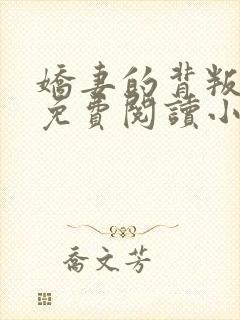 嬌妻的背叛
免費閱讀小
喬文芳